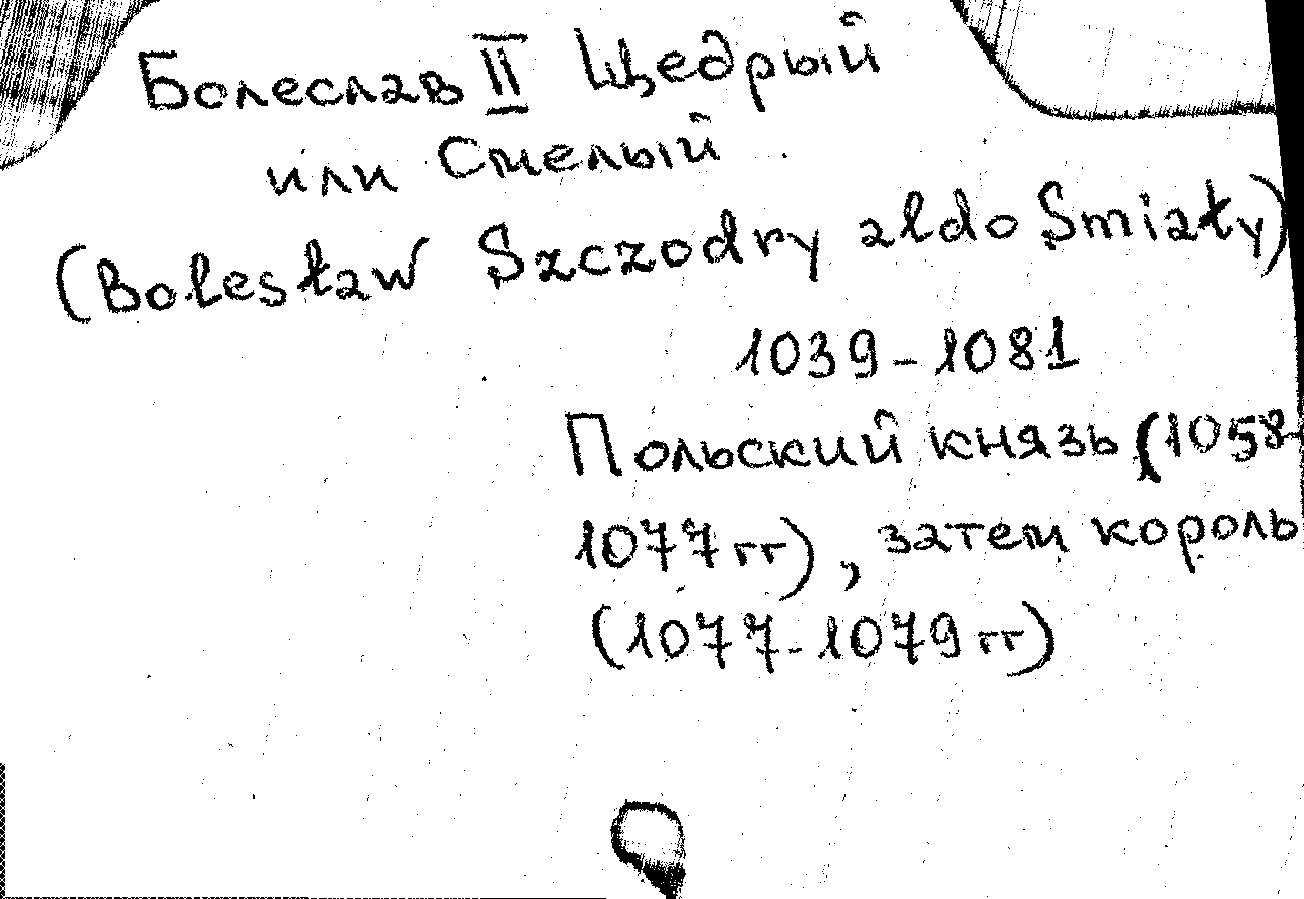 Болеслав II Щедрый
или Смелый
(Bolesław Szczodry aldo Śmiały)
1039-1081
Польский князь (1058-
1077 гг), затем король
(1077-1079 гг)